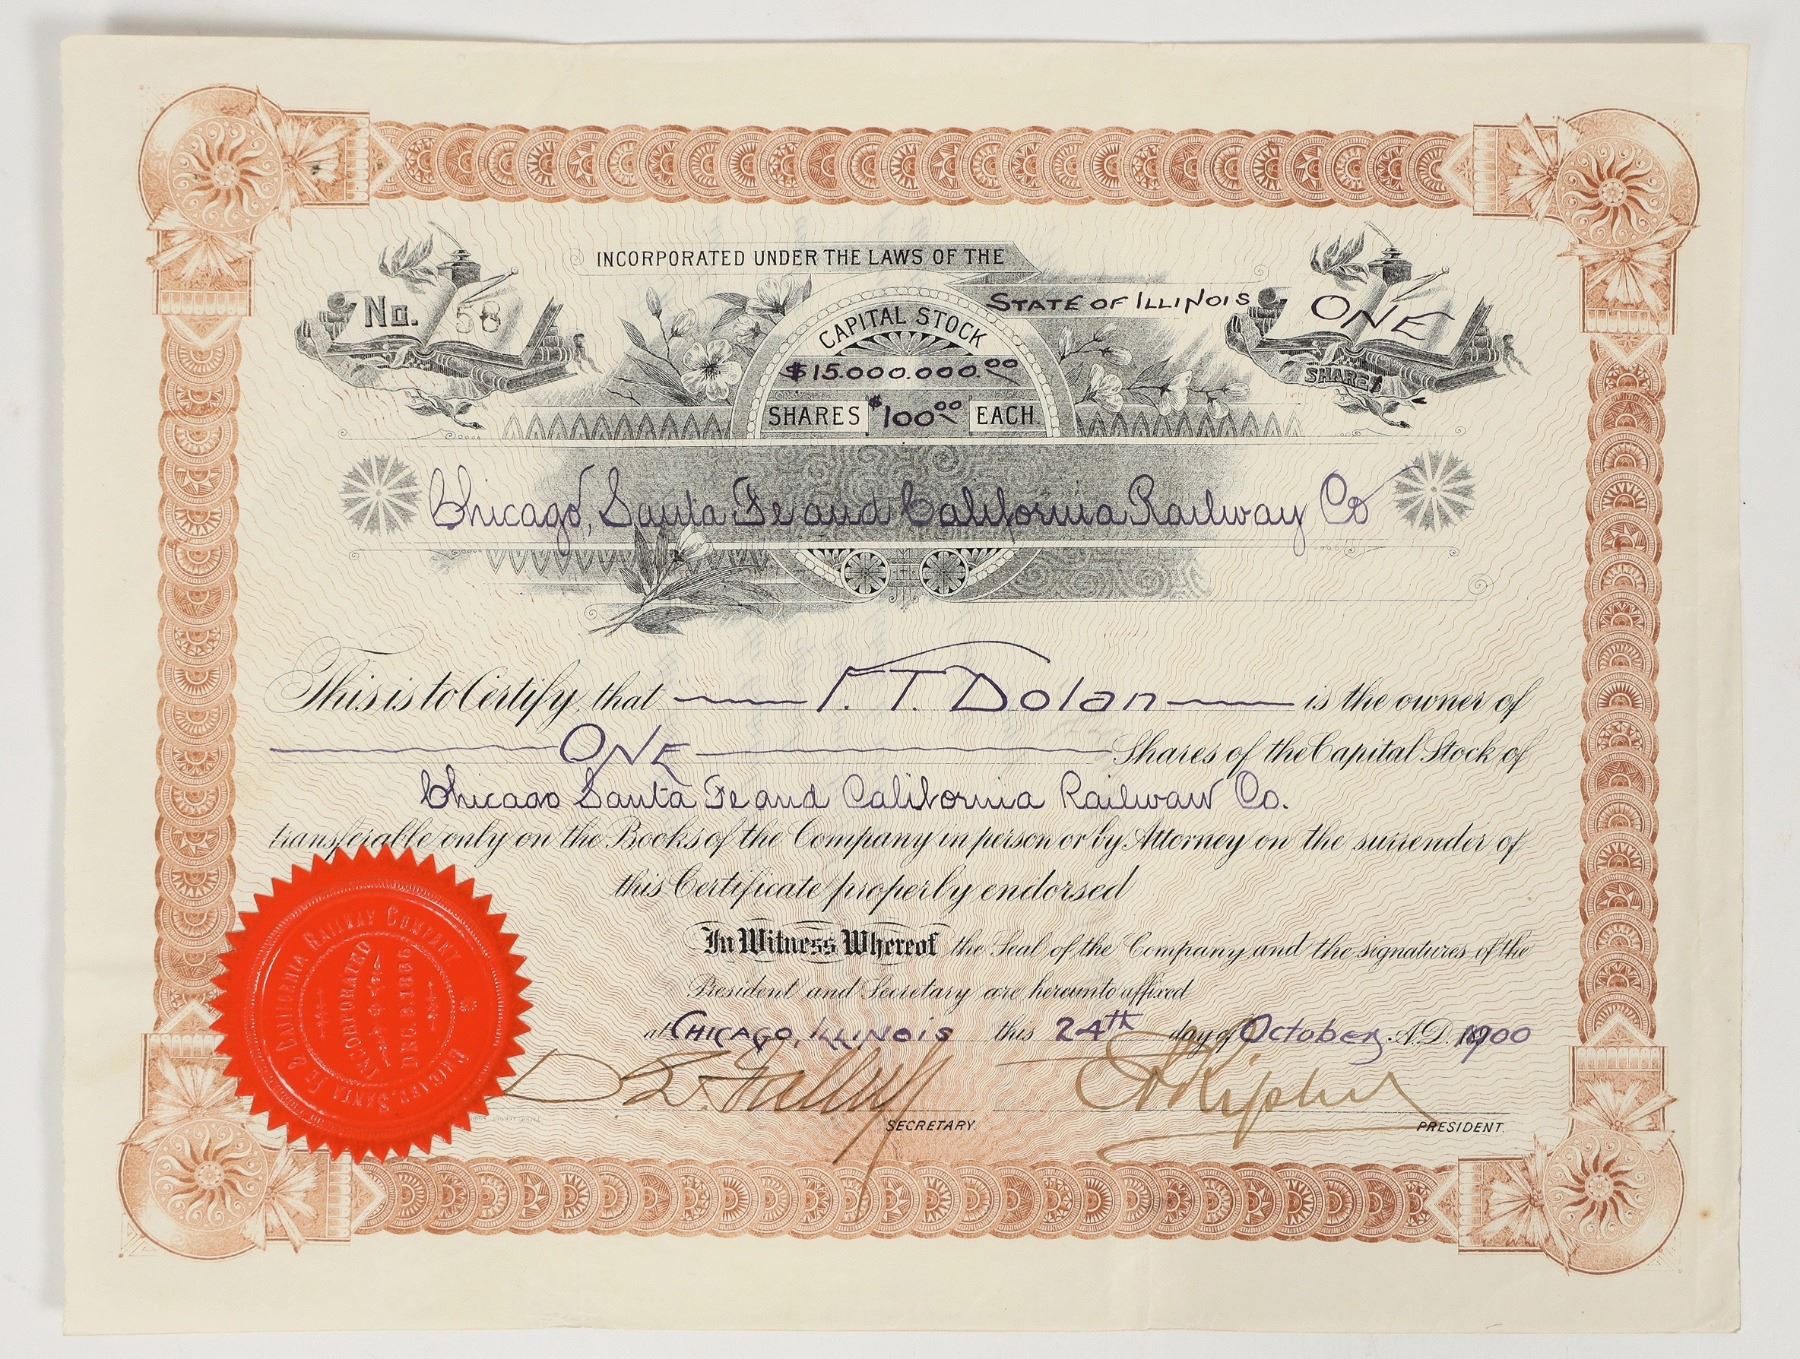 INCORPORATED UNDER THE LAWS OF THE
STATE OF ILLINOIS
No. 58
ONE
SHARES
CAPITAL STOCK
$15.000.000.00
SHARES $100.00 EACH
Chicago, Santa Fe and California Railway Co
This is to Certify that F. T. Dolan is the owner of
ONE Shares of the Capital Stock of
Chicago Santa Fe and California Railway Co.
transferable only on the Books of the Company in person or by Attorney on the surrender of
this Certificate properly endorsed
In Witness Whereof the Seal of the Company and the signatures of the
President and Secretary are hereunto affixed
at CHICAGO, ILLINOIS this 24th day of October A.D. 1900
SECRETARY.
PRESIDENT.
CHICAGO, SANTA FE & CALIFORNIA RAILWAY COMPANY
INCORPORATED
DEC. 3. 1886